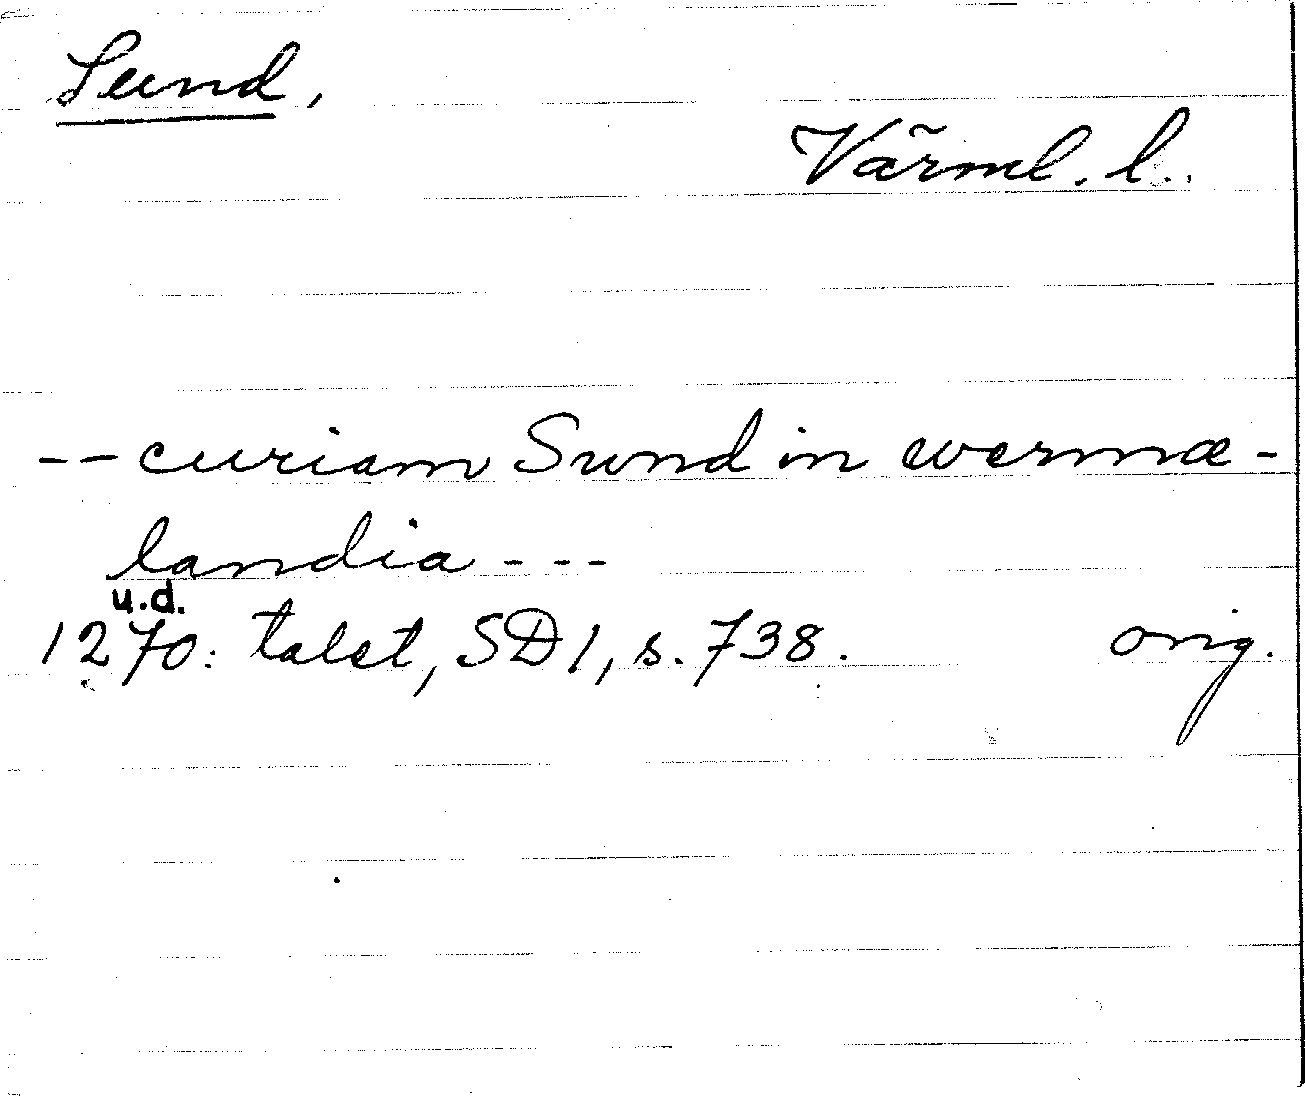 Sund,
Värml. l.
-- curiam Swnd in wermæ-
landia ---
u.d.
1270: talet, SD 1, s. 738. orig.